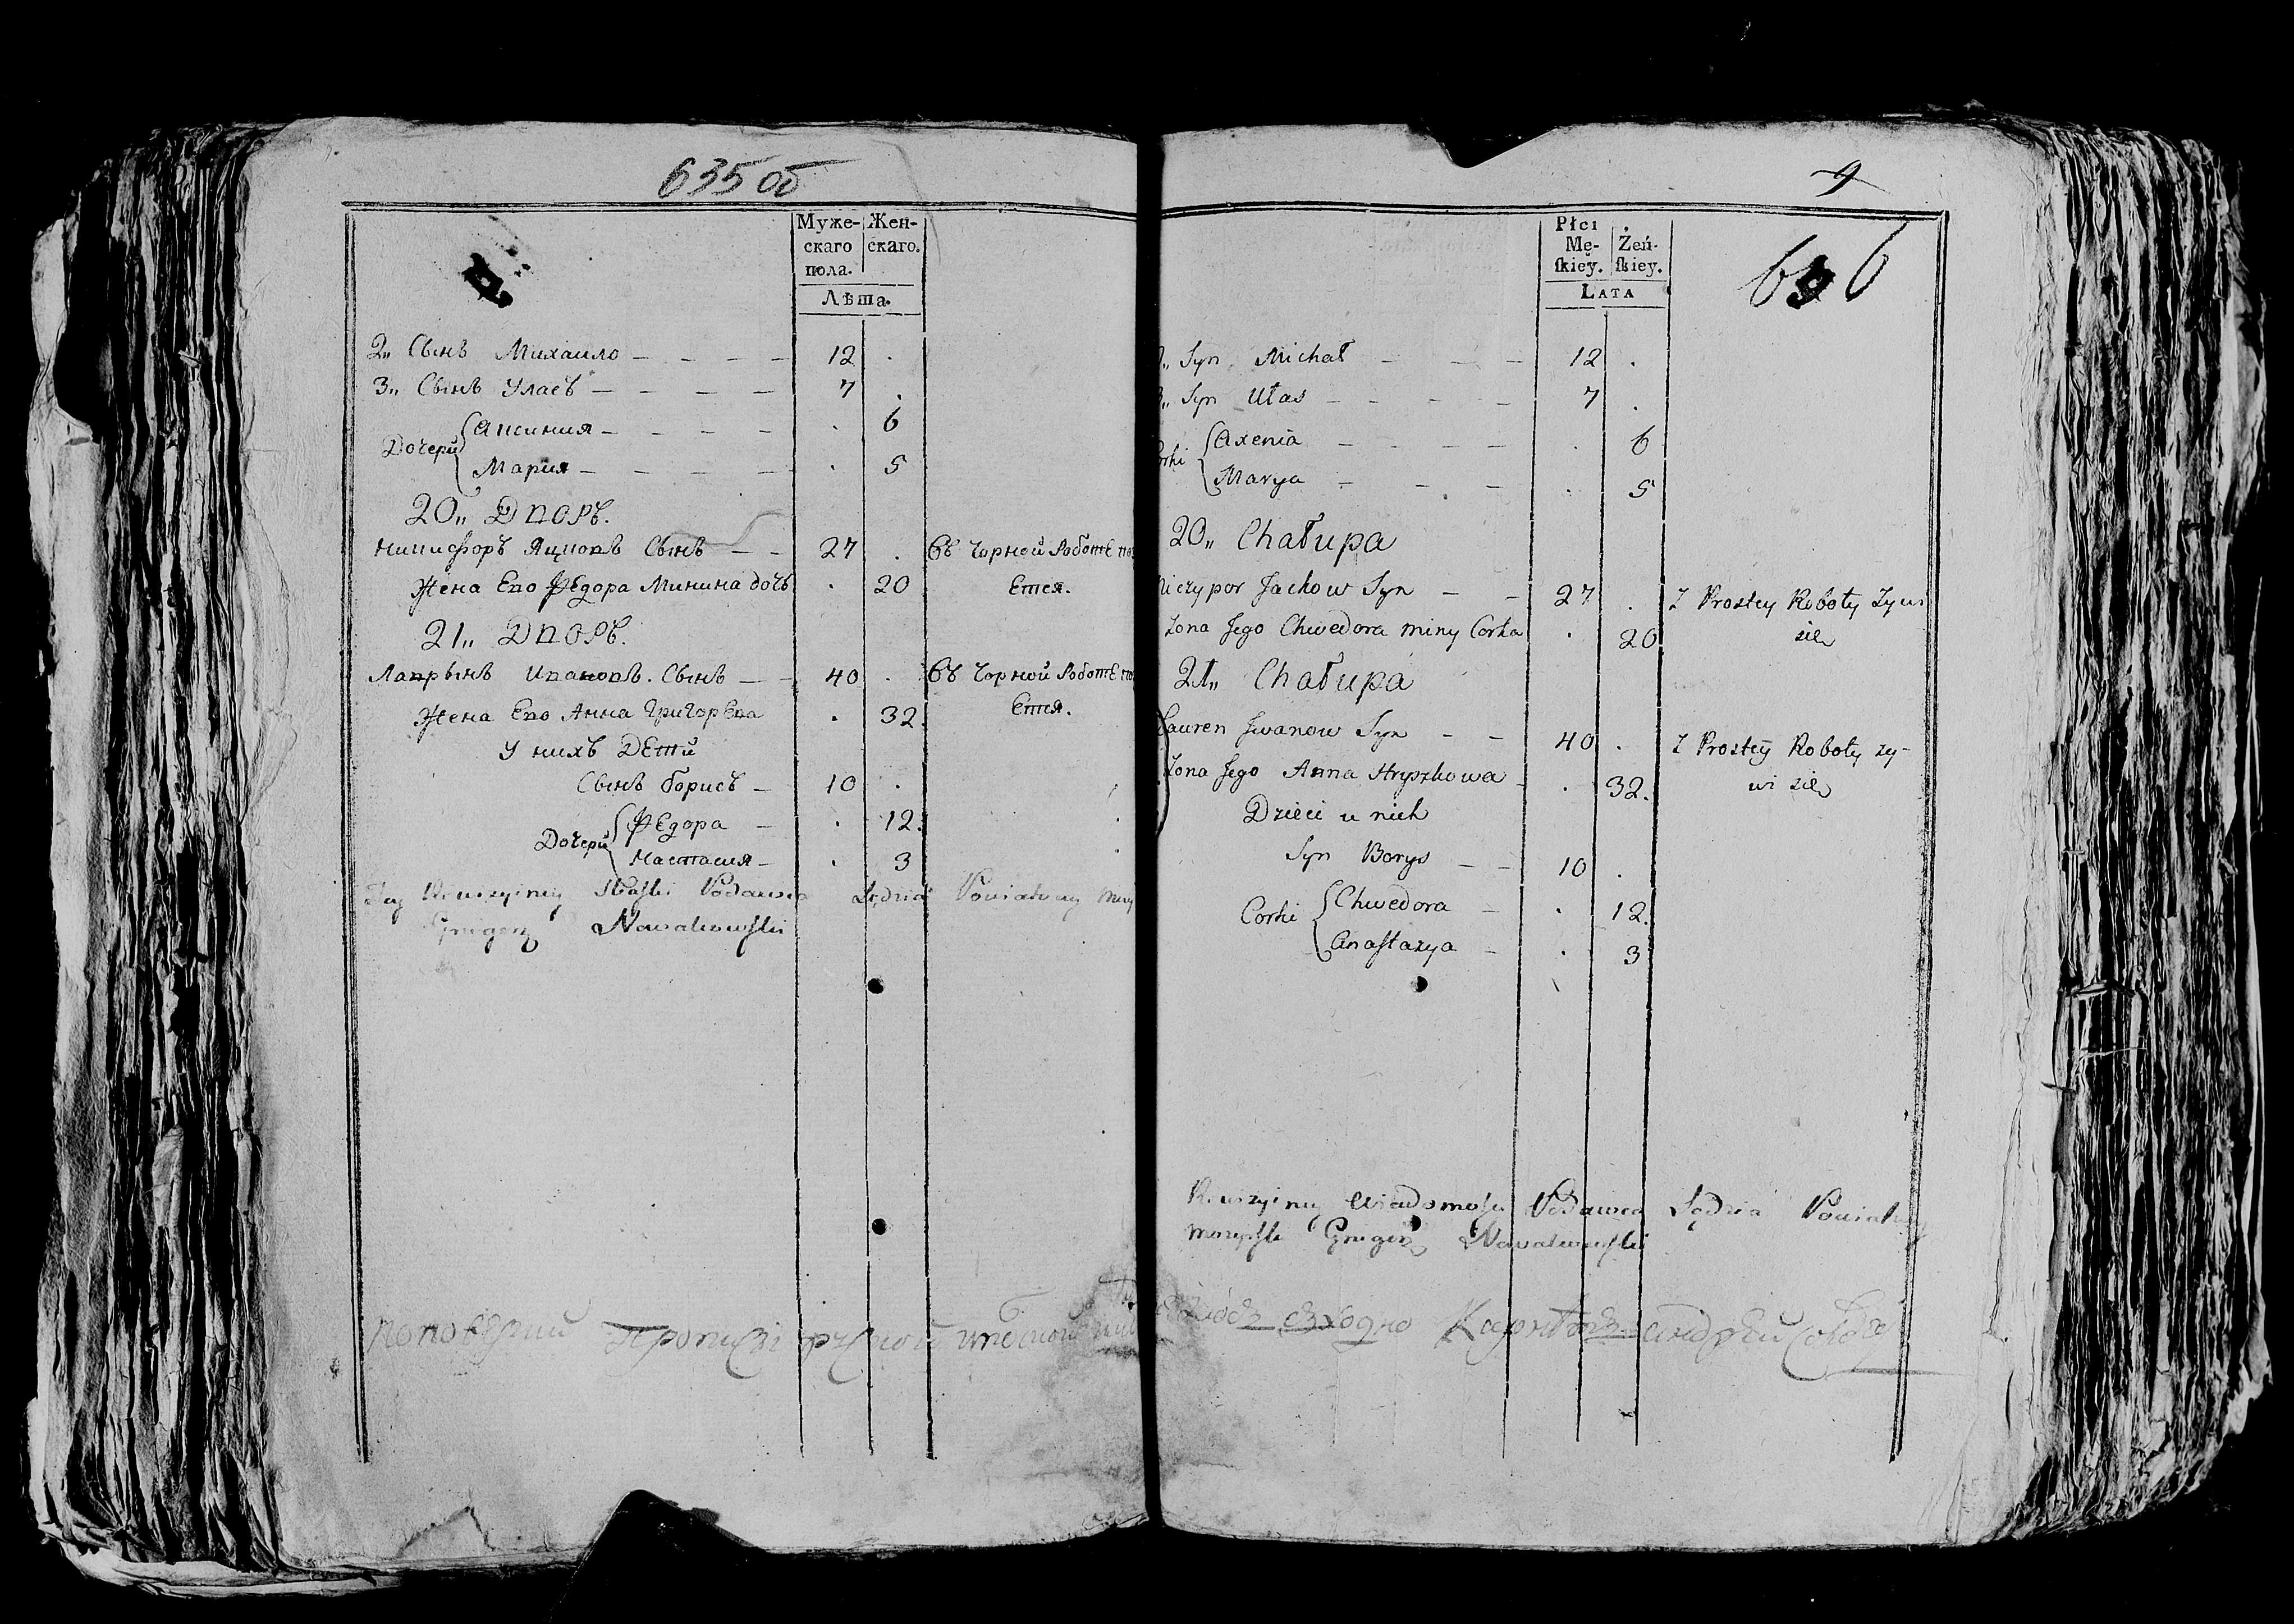 635 об
Муже-
скаго
пола.
Жен-
скаго.
Лѣта.
2„ Сынъ Михаило 12 .
3„ Сынъ Уласъ 7 .
Дочери
Аксиния . 6
Мария . 5
20„ Дворъ.
Никифоръ Яцковъ Сынъ 27 . Съ Чорной Роботе
Жена Его Федора Минина дочь . 20 ется.
21„ Дворъ.
Лаврынъ Ивановъ Сынъ 40 . Съ Чорной Роботе
Жена Его Анна Григорева . 32. ется.
У нихъ Дети
Сынъ Борисъ 10 .
Дочери
Федора . 12.
Настасия . 3
Rewizyiney Podawca Sędzia Powiatowy
Grzegorz Nowakowski
9
636
Płci
Mę-
ſkiey.
Żeń-
ſkiey.
Lata
Syn Michał 12 .
Syn Ułas 7 .
Axenia . 6
Marya . 5
20„ Chałupa
Niczypor Jackow Syn 27 . Z Prostey Roboty Zywi
Zona Jego Chwedora Miny Corka . 20 się
21„ Chałupa
Lauren Jwanow Syn 40 . Z Prostey Roboty zy-
Zona Jego Anna Hryszkowa . 32. wi się
Dzieci u nich
Syn Borys 10 .
Corki
Chwedora . 12.
Anaſtazya . 3
Rewizyiney Wiadomoſci Podawca Sędzia Powiatowy
Mozyrſki Grzegorz Nowakowſki